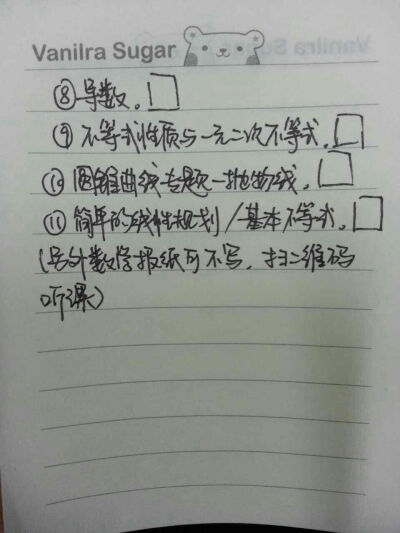 Vanilra Sugar
⑧导数。□
⑨不等式性质与一元二次不等式。□
⑩圆锥曲线专题—抛物线。□
⑪简单的线性规划/基本不等式。□
(另外数学报纸可不写,扫二维码
听课)